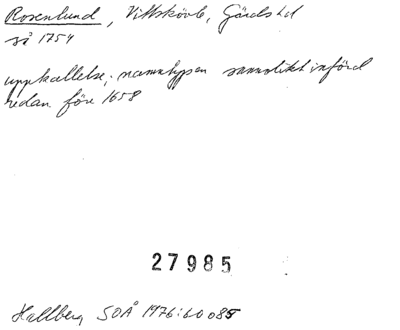 Rosenlund, Vittskövle, Gärds hd
så 1754
uppkallelse; namntypen sannolikt införd
redan före 1658
27985
Hallberg SOÅ 1976:60 085